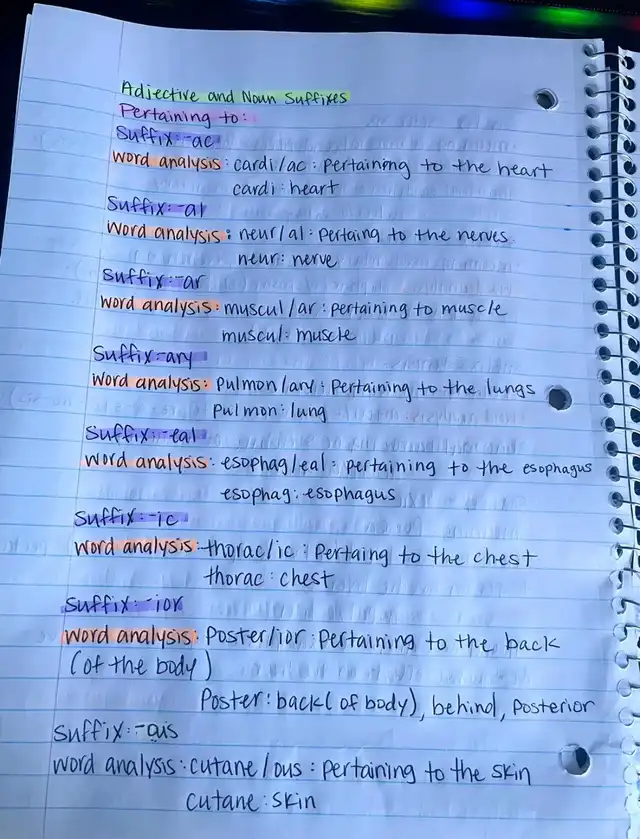 Adjective and Noun Suffixes
Pertaining to:
Suffix: -ac
word analysis: cardi/ac: pertaining to the heart
cardi: heart
Suffix: -al
word analysis: neur/al: pertaing to the nerves
neur: nerve
Suffix: -ar
word analysis: muscul/ar: pertaining to muscle
muscul: muscle
Suffix: -ary
word analysis: pulmon/ary: pertaining to the lungs
pulmon: lung
Suffix: -eal
word analysis: esophag/eal: pertaining to the esophagus
esophag: esophagus
Suffix: -ic
word analysis: thorac/ic: pertaing to the chest
thorac: chest
Suffix: -ior
word analysis: poster/ior: pertaining to the back
(of the body)
Poster: back (of body), behind, posterior
Suffix: -ous
word analysis: cutane/ous: pertaining to the skin
cutane: skin